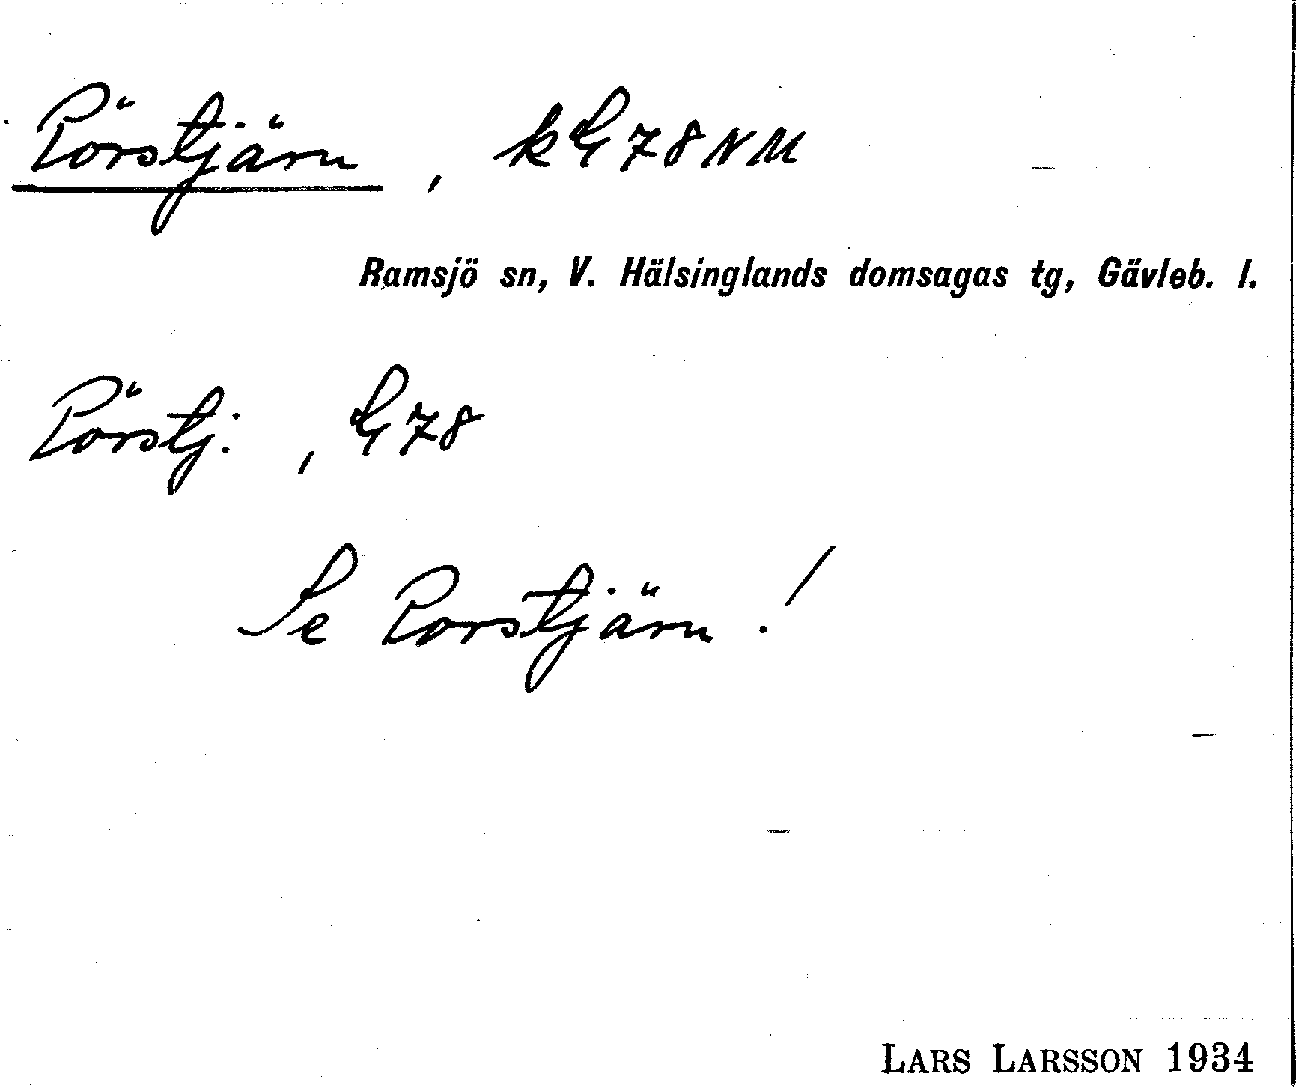 Pörstjärn, kG78NM
Ramsjö sn, V. Hälsinglands domsagas tg, Gävleb. l.
Pörstj:, G78
Se Porstjärn!
LARS LARSSON 1934